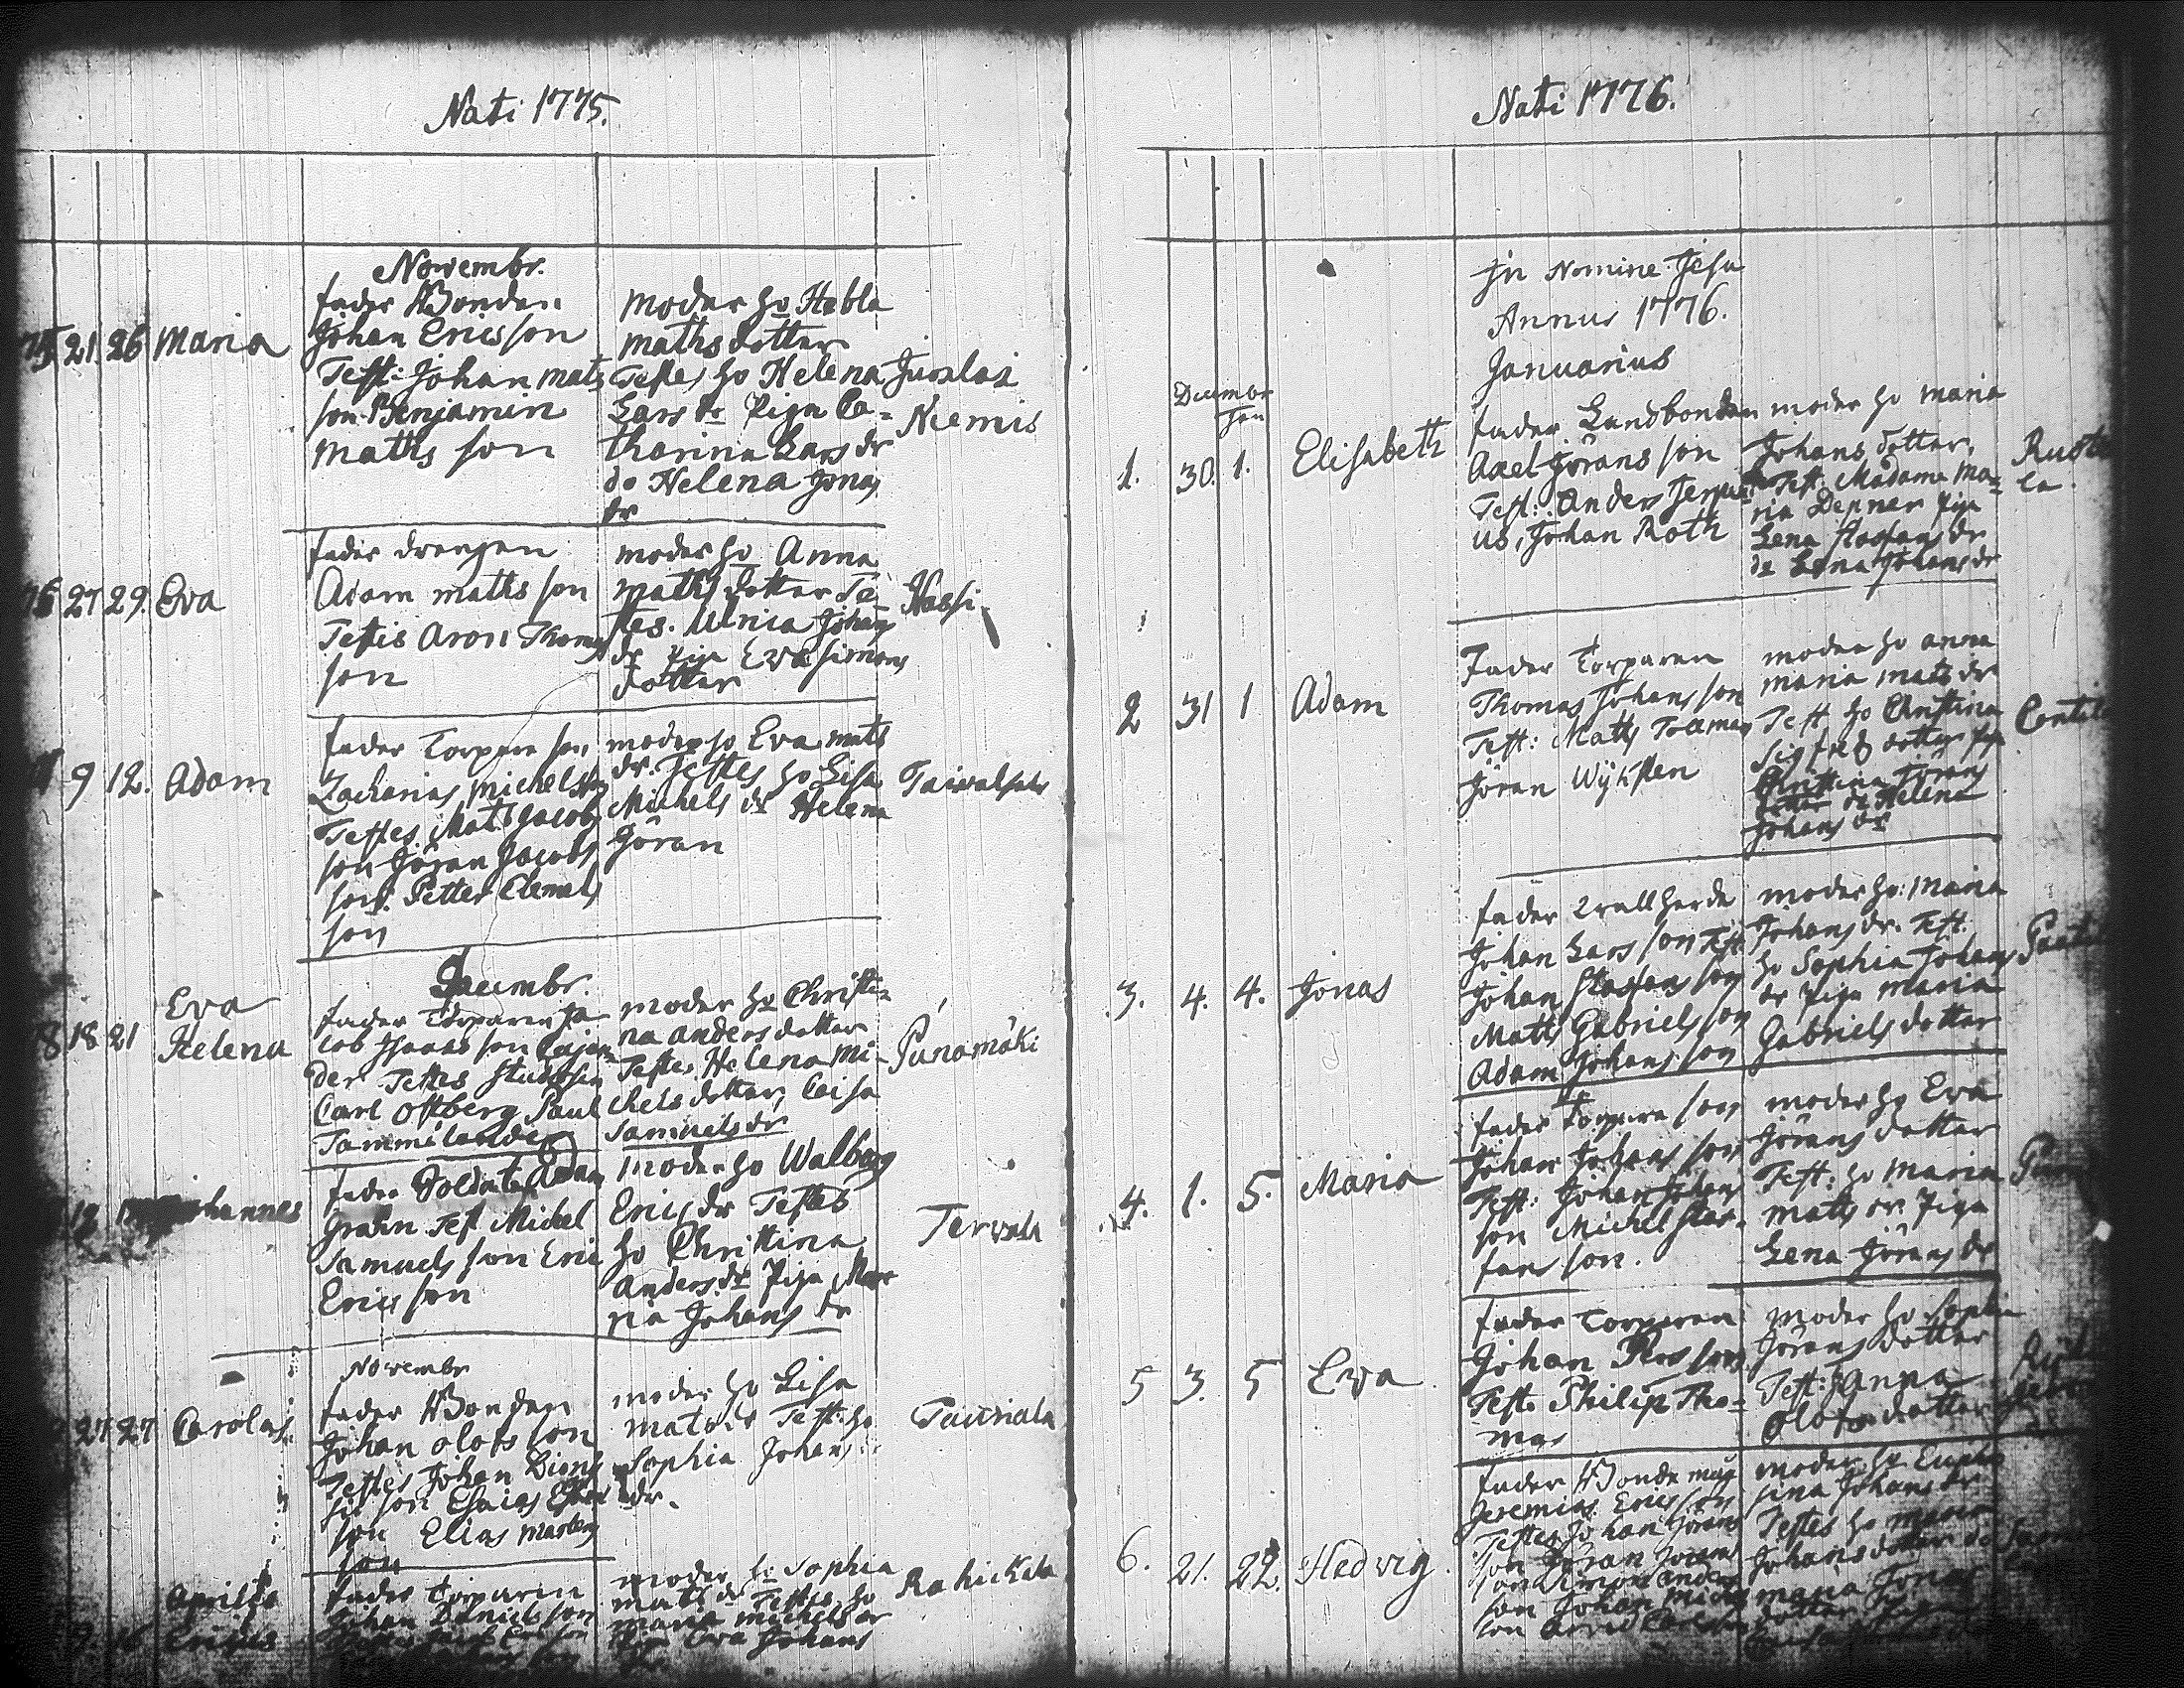 Nati 1775.
Novembr.
75 21 26 Maria
fader Bonden
Johan Ericsson
Test: Johan mats
son Benjamin
maths son
moder ho Hebla
maths dotter
Testes ho Helena
Lars dr Piga Ca=
tharina Lars dr
do Helena Jonas
dr
Niemis
76 27 29. Eva
fader drengen
Adam maths son
Testis Aron Thomas
son
moder ho Anna
maths dotter Te
stes. Ulrica Johans
dr Piga Eva Simons
dotter
Hassi
9 12. Adam
fader Torpare son
Zacharias michels
Testes Mats Jacobs
son Jöran Jacobs
son. Petter Clemets
son
moder ho Eva mats
dr. Testes ho Lisa
Michels dr Helena
Göran
Decembr.
18 21 Eva
Helena
fader Torparen Ja
cob Isaacs son
der Testes Studiosen
Carl Ostberg Paul
Tammelander
moder ho Christi=
na anders dotter
Testes Helena Mi=
chels dotter, Caisa
Samuels dr
Pänämäki
12 hannes
fader Soldaten Adam
Grahn Test Michel
Samuels son Eric
Erics son
moder ho Walborg
Erics dr Testes
ho Christina
Anders dr Piga Ma
ria Johans dr
Tervala
Novembr
27 27 Carolus
fader Bonden
Johan olofs son
Testes Johan Dions
son Esaias
son Elias Martens
son
moder ho Lisa
mats dr Test: ho
Sophia Johans
dr.
Tauriala
Aprilis
Ericus
fader Torparen
Johan Daniels son
moder ho Sophia
mats dr Testes ho
maria michels dr
Piga Eva Johans
dr
Rahickala
Nati 1776.
Jn Nomine Jesu
Annus 1776.
Januarius
Decembr
Jan
1. 30. 1. Elisabeth
fader Landbonden
Axel Jörans son
Test: Anders
us, Johan Roth
moder ho maria
Johans dotter.
Test. Madame Ma=
ria Depner Piga
Lena Staffans dr
do Lena Johans dr
2 31 1 Adam
Fader Torparen
Thomas Johans son
Test: Matts
Jöran Wyksten
moder ho anna
maria mats dr
Test ho Christina
Sigfreds dotter Piga
Christina Jörans
dotter do Helena
Johans dr
3. 4. 4. Jonas
fader wallherde
Johan Lars son Test:
Johan Staffans son
Matts Gabriels son
Adam Johans son
moder ho: Maria
Johans dr. Test.
ho Sophia Johans
dr Piga Maria
Gabriels dotter
4. 1. 5. Maria
fader Torpare son
Johan Johans son
Test: Johan Johans
son Michel Staf=
fans son.
moder ho Eva
Jörans dotter
Test: ho Maria
matts dr. Piga
Lena Jörans dr
5 3. 5 Eva
fader Torparen
Johan Pers son
Test. Philip Tho=
mas
moder ho Sophia
Jörans dotter
Test: Anna
olofs dotter
6. 21. 22. Hedvig.
fader Bonde måg
Jeremias Erics son
Testes Johan Jörans
son Jöran
son Simon anders
son Johan
son
moder ho Euphro
sina Johans dr
Testes ho maria
Johans dotter do
maria Jonas
dotter